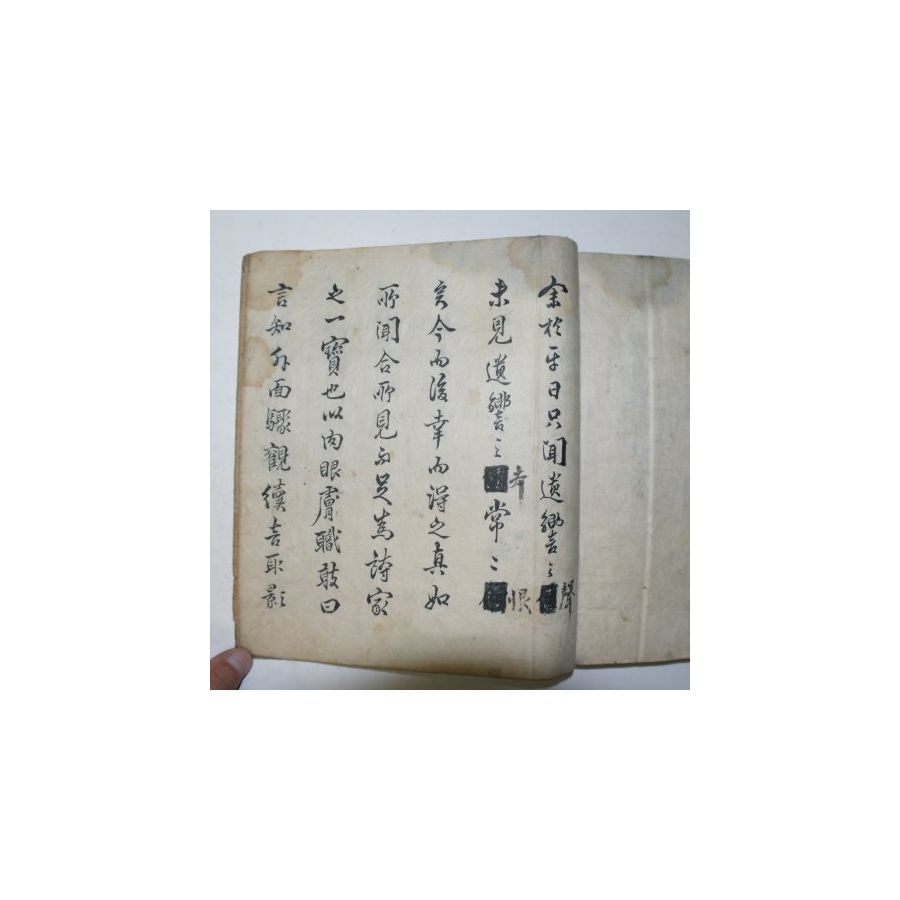 余於平日只聞遺響之聲
未見遺響之卷常之恨
矣今而後幸而得之真如
所聞合所見而足為詩家
之一寶也以肉眼膚職敢曰
言知外面驟觀續言取影